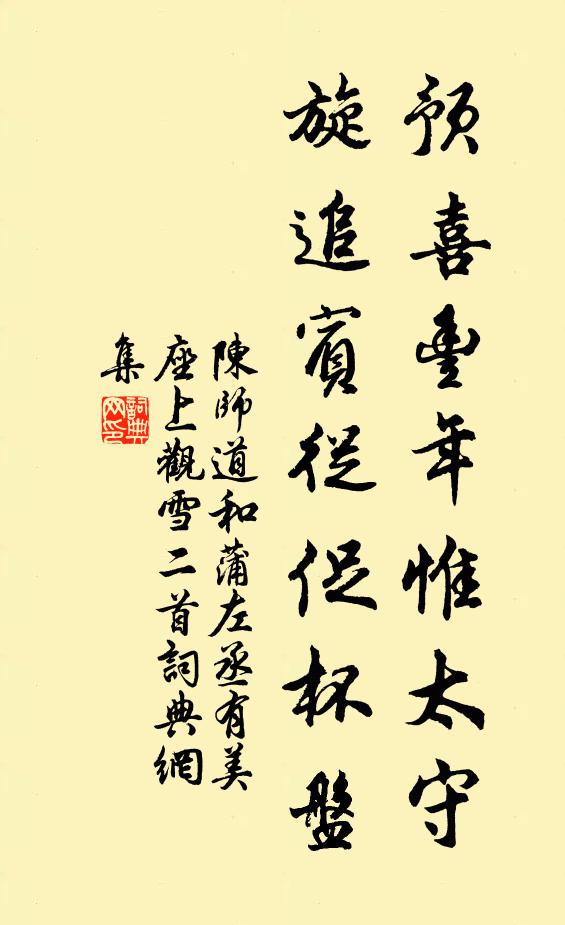 預喜豊年惟太守
旋追賓從促杯盤
陳師道和蒲左丞有美
座上觀雪二首詞典網
集
詞典
网印